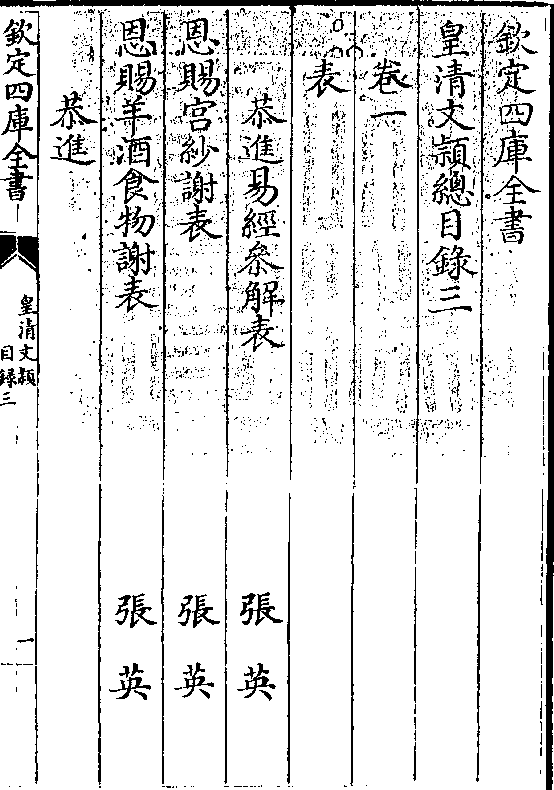 欽定四庫全書
皇清文穎總目録三
卷一
表
恭進易經參解表 張英
恩賜宫紗謝表 張英
恩賜羊酒食物謝表 張英
恭進
欽定四庫全書
皇清文穎
目録三
一